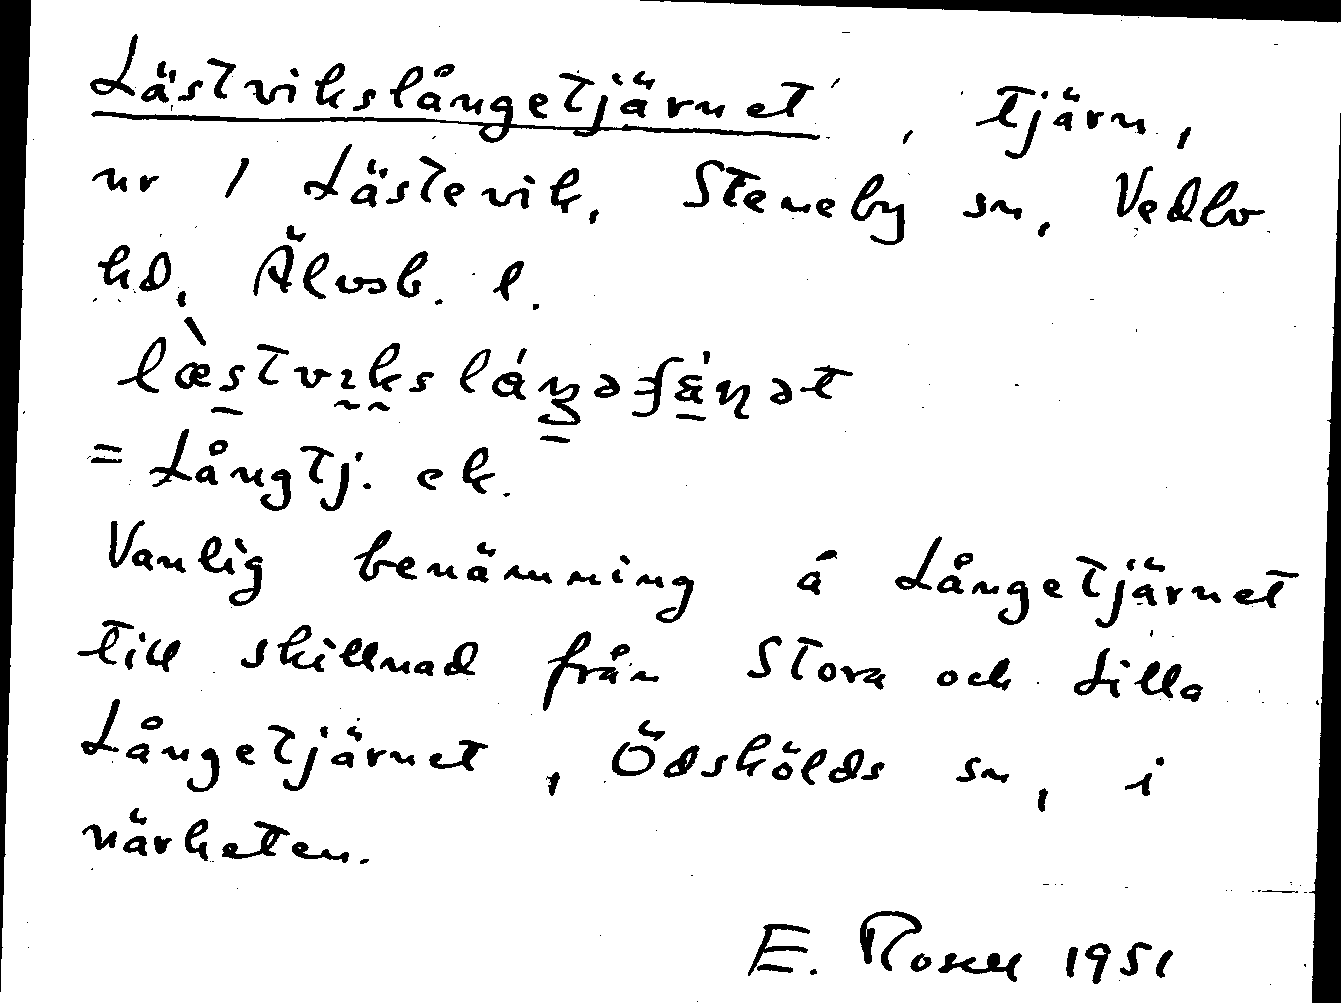 Lästvikslångetjärnet, tjärn,
nr 1 Lästevik, Steneby sn, Vedbo
hd, Älvsb. l.
= Långtj. ek.
Vanlig benämning å Långetjärnet
till skillnad från Stora och Lilla
Långetjärnet, Ödskölds sn, i
närheten.
E. Rosell 1951